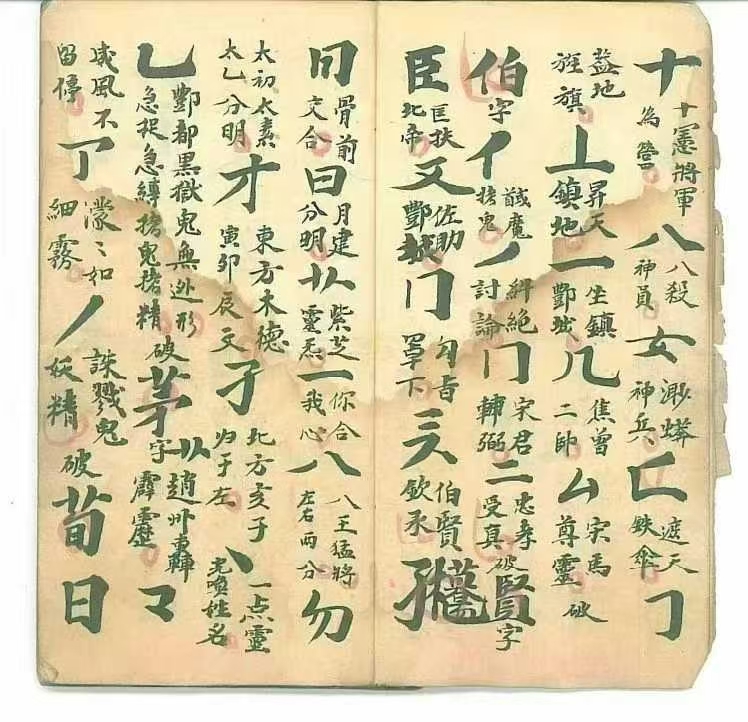 十 十憲將軍 為營 八 八殺 神員 女 渺 神兵 匚 遮天 鉄傘 𠃌
蓋地 旌旗 丄 昇天 鎮地 一 坐鎮 酆城 几 焦曾 二帥 厶 宋馬 尊靈 破
伯字 亻 馘魔 鬼 丿 糾絕 討論 冂 宋君 輔弼 二 忠孝 受真 破賢字
臣 匡扶 北帝 又 佐助 酆城 冂 勾旨 罩下 三 伯賢 欽承
冃 骨前 交合 曰 月建 分明 厸 紫芝 靈炁 一 你合 我心 八 八王猛將 左右兩分 勿
太初太素 太乙分明 才 東方木德 寅卯辰文 子 北方亥子 归于左 丶 一点靈 光喚姓名
乙 酆都黑獄鬼無迯形 急捉急縛 鬼 精 破茅字 厸 趙 霹靂 龴
威風不 留停 丁 濛〻如 細霧 丿 誅戮鬼 妖精 破荀日